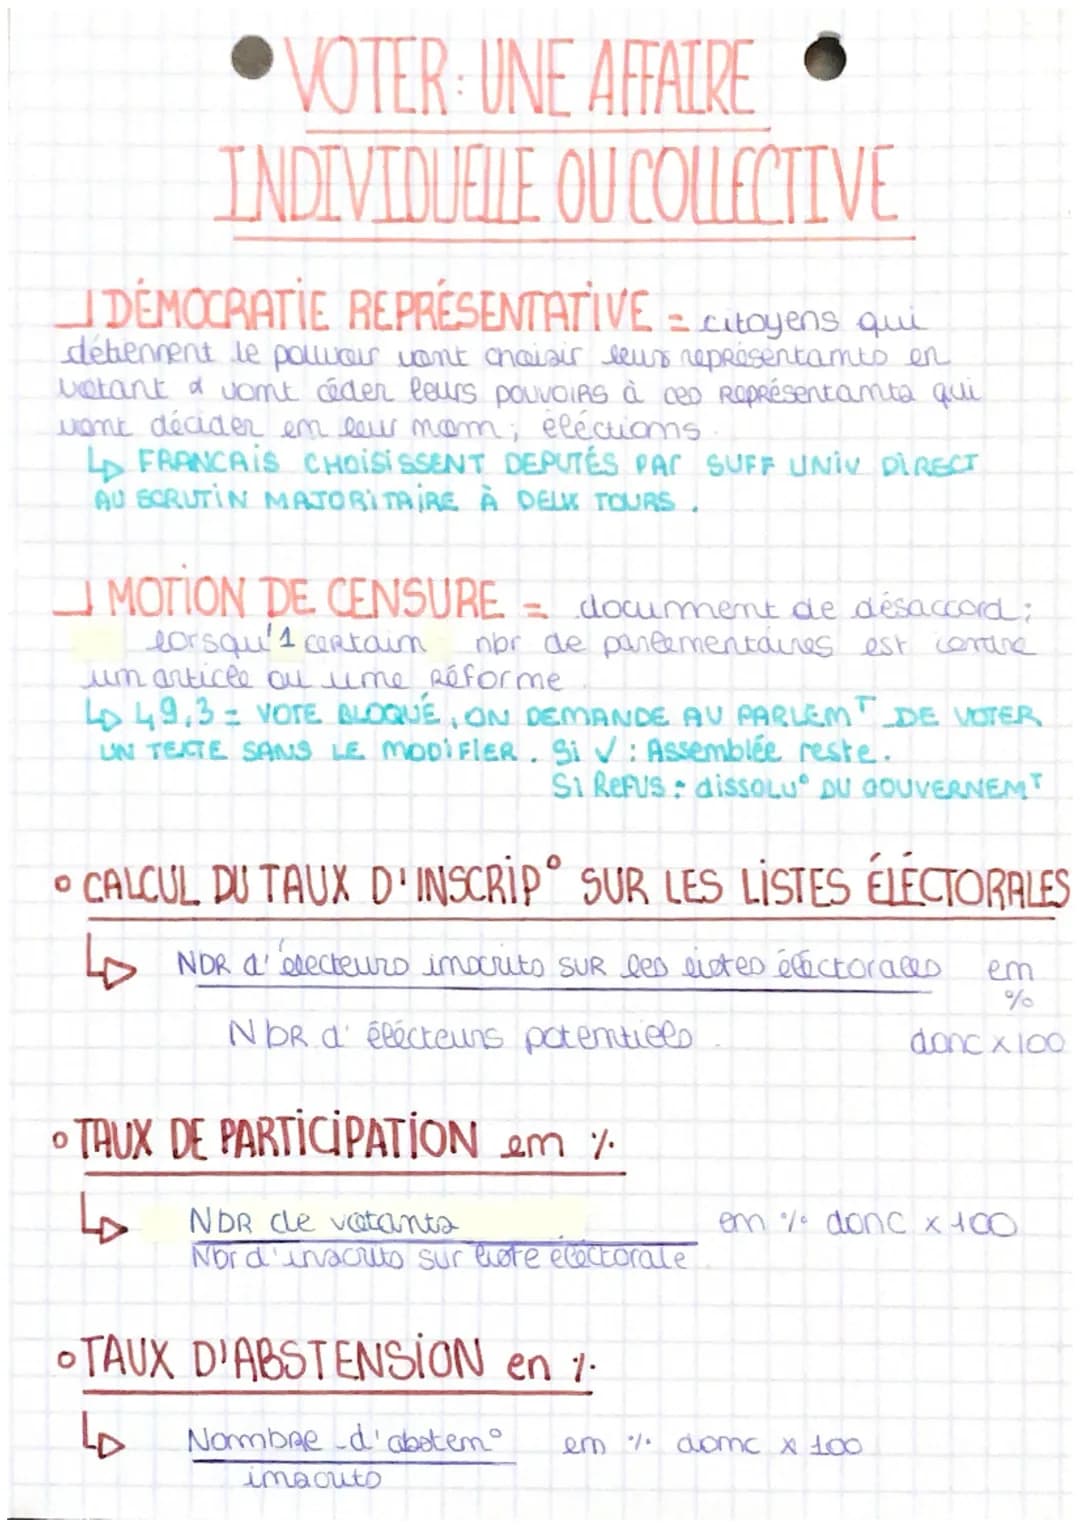 VOTER: UNE AFFAIRE
INDIVIDUELLE OU COLLECTIVE
DÉMOCRATIE REPRÉSENTATIVE = citoyens qui
détiennent le pouvoir vont choisir leurs représentants en
votant & vont céder leurs pouvoirs à ces représentants qui
vont décider en leur nom; éléctions.
↳ FRANCAIS CHOISISSENT DEPUTÉS PAR SUFF UNIV DIRECT
AU SCRUTIN MAJORITAIRE À DEUX TOURS.
MOTION DE CENSURE = document de désaccord;
lorsqu'1 certain nbr de parlementaires est contre
un article ou une Réforme
↳ 49,3 = VOTE BLOQUÉ, ON DEMANDE AU PARLEMT DE VOTER
UN TEXTE SANS LE MODIFIER. Si ✓: Assemblée reste.
Si REFUS: dissolu° DU GOUVERNEMT
• CALCUL DU TAUX D'INSCRIP° SUR LES LISTES ÉLÉCTORALES
↳ NBR d'électeurs inscrits SUR les listes éléctorales em
%
NBR d'élécteurs potentiels. donc x 100
• TAUX DE PARTICIPATION em %
↳ NBR de votants em % donc x 100
Nbr d'inscrits sur liste éléctorale
• TAUX D'ABSTENSION en %
↳ Nombre d'absten° em % donc x 100
inscrits